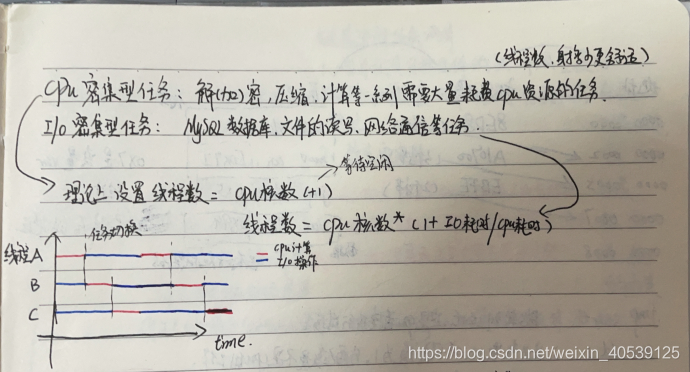 (线程数,射多少更合适)
CPU 密集型任务: 解(加)密,压缩,计算等一系列需要大量耗费cpu资源的任务.
I/O 密集型任务: MySQL数据库,文件的读写,网络通信等任务.
等待空闲
理论上设置线程数 = cpu核数(+1)
线程数 = CPU核数* (1+IO耗时/CPU耗时)
线程A 任务切换 cpu计算
I/O操作
B
C
time.
https://blog.csdn.net/weixin_40539125